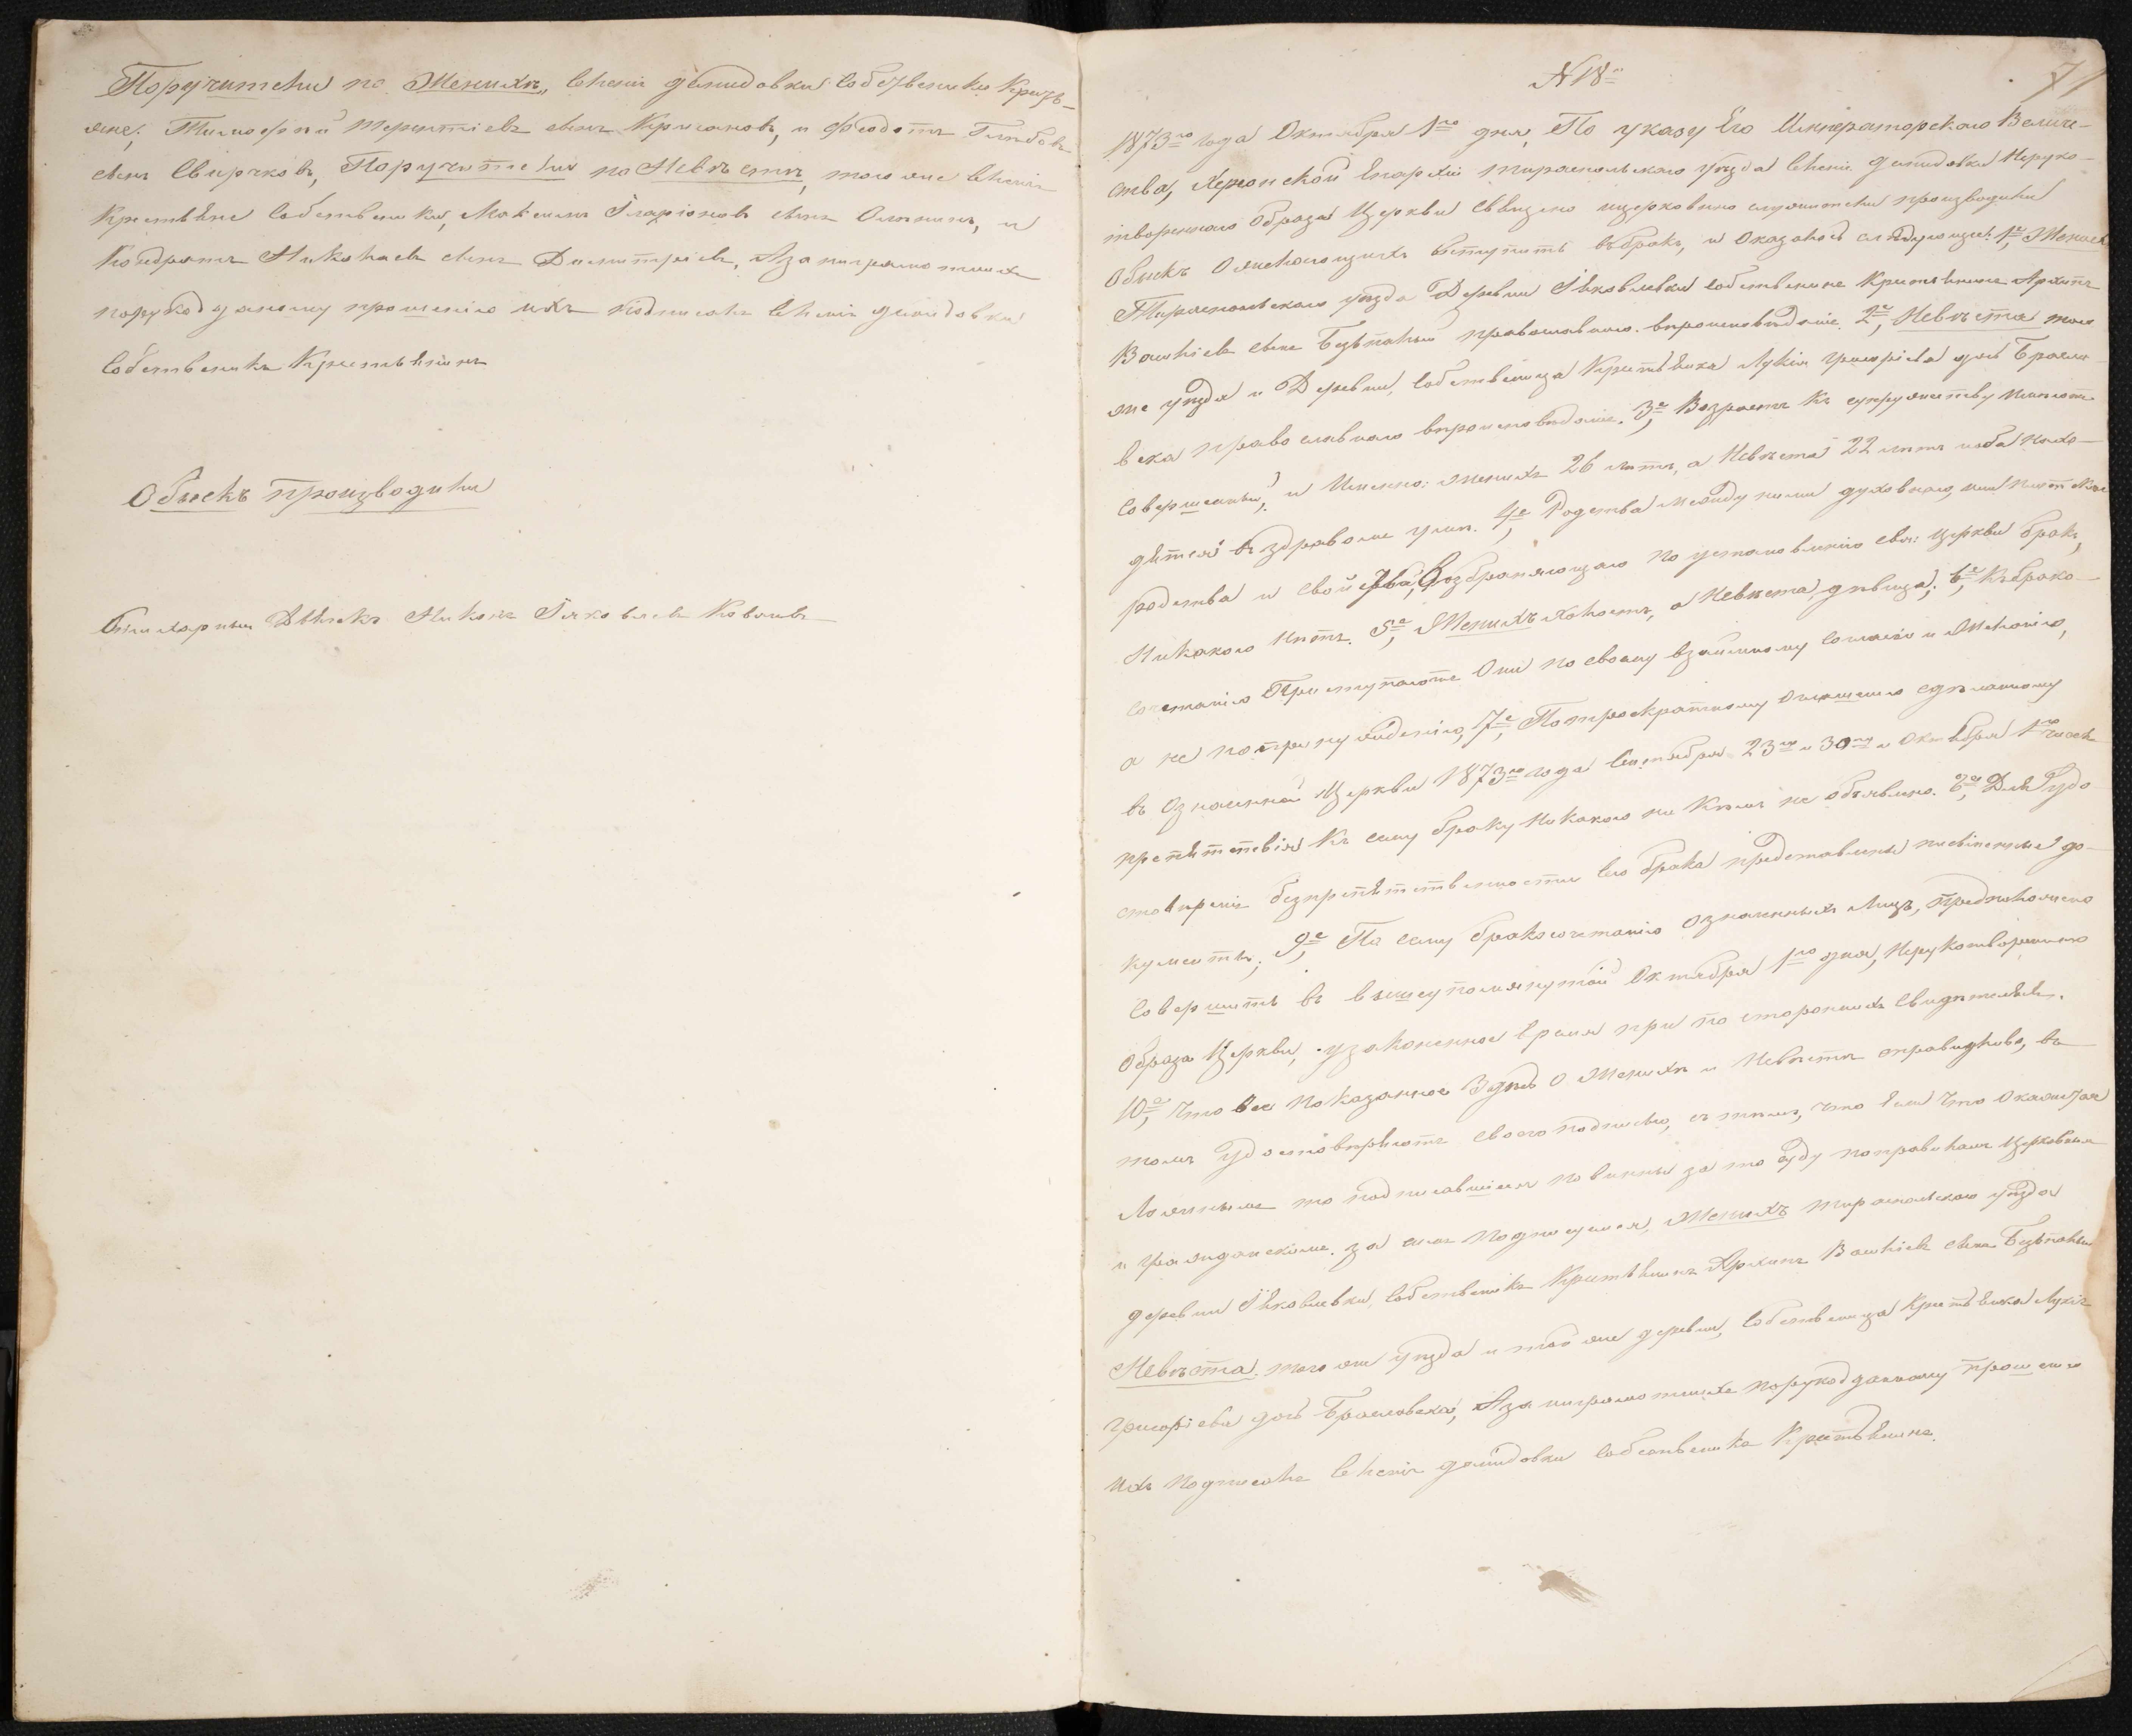 Поручители по Женихѣ, селенiя демидовки собственики Крестья-
яне, Тимофей Терентiевъ сынъ Кричановъ, и Феодотъ Глѣбовъ
сынъ Свирчковъ, Поручители по Невѣстѣ, того же селенiя
Крестьяне собственики, Максимъ Iларiоновъ сынъ и
Кондратъ Николаевъ сынъ Димитрiевъ, А за неграмотныхъ
порукоданому прошенiю ихъ подписалъ селенiя демидовки
Собственикъ Крестьянинъ
Обыскъ производили
Дьячокъ Никола Iяковлевъ Ковалевъ
№ 18й
71
1873го года Октября 1го дня, По указу Его Императорского Величе-
ства, Херсонской Епархiи тираспольского уѣзда селенiя демидовки Неруко-
творенного образа Церкви священо ицерковно служители производили
обыскъ о желающихъ вступить въбракъ, и оказалось следующее. 1е, Женихъ
Тираспольского уѣзда Деревни Iяковлевки собственикъ Крестьянинъ Архипъ
Василiевъ сынъ Безпалый православного вѣроисповѣданiя. 2е, Невѣста того
же уѣзда и Деревни, собственица Крестьянка Лукiя григорiева дочь Брасла-
вска православного вѣроисповѣданiя. 3е, Возрастъ къ супружеству имѣютъ
совершенный, и Именно: женихъ 26 лѣтъ, а Невѣста 22 лѣтъ иоба нахо-
дятся въ здравомъ умѣ. 4е, Родства между ними духовного, или плотского
родства и свойства, возбраняющаго по установленiю свя: церкви бракъ,
Никакого нѣтъ. 5е, Женихъ холостъ, а Невѣста девица; 6е, Къбрако-
сочетанiю Приступаютъ Они по своему взаимному согласiю и Желанiю,
а не попринужденiю, 7е, Потроекратному оглашенiю сдѣланному
въ означенной Церкви 1873го года Сентября 23го и 30го и октября 1го числъ
препятствiя къ сему браку Никакого ни кѣмъ не объявлено. 8е, Для Удо-
стовѣренiя безпрепятственности сего брака представлены письменные до-
кументы, 9е, По сему бракосочетанiю означенныхъ Лицъ, предположено
Совершить въ вышеупомянутой Октября 1го дня, Нерукотворенного
образа Церкви, узаконенное время при постороннихъ свидетеляхъ.
10е, Что все показанное Здесь о Женихѣ и Невѣстѣ справедливо, въ
томъ удостовѣряютъ своею подписью, съ тѣмъ, что если что окажится
Ложнымъ то подписавшiися повинны за то суду поправиламъ церковнымъ
и гражданскимъ. за симъ Подписуемся, Женихъ тираспольского уѣзда
деревни Iяковлевки, собственикъ Крестьянинъ Архипъ Василiевъ сынъ Безпалый
Невѣста, того же уѣзда и той же деревни, собственица Крестьянка Лукiя
григорiева дочь Браславска, А за неграмотныхъ порукоданному прошенiю
ихъ подписалъ селенiя демидовки собственикъ Крестьянинъ